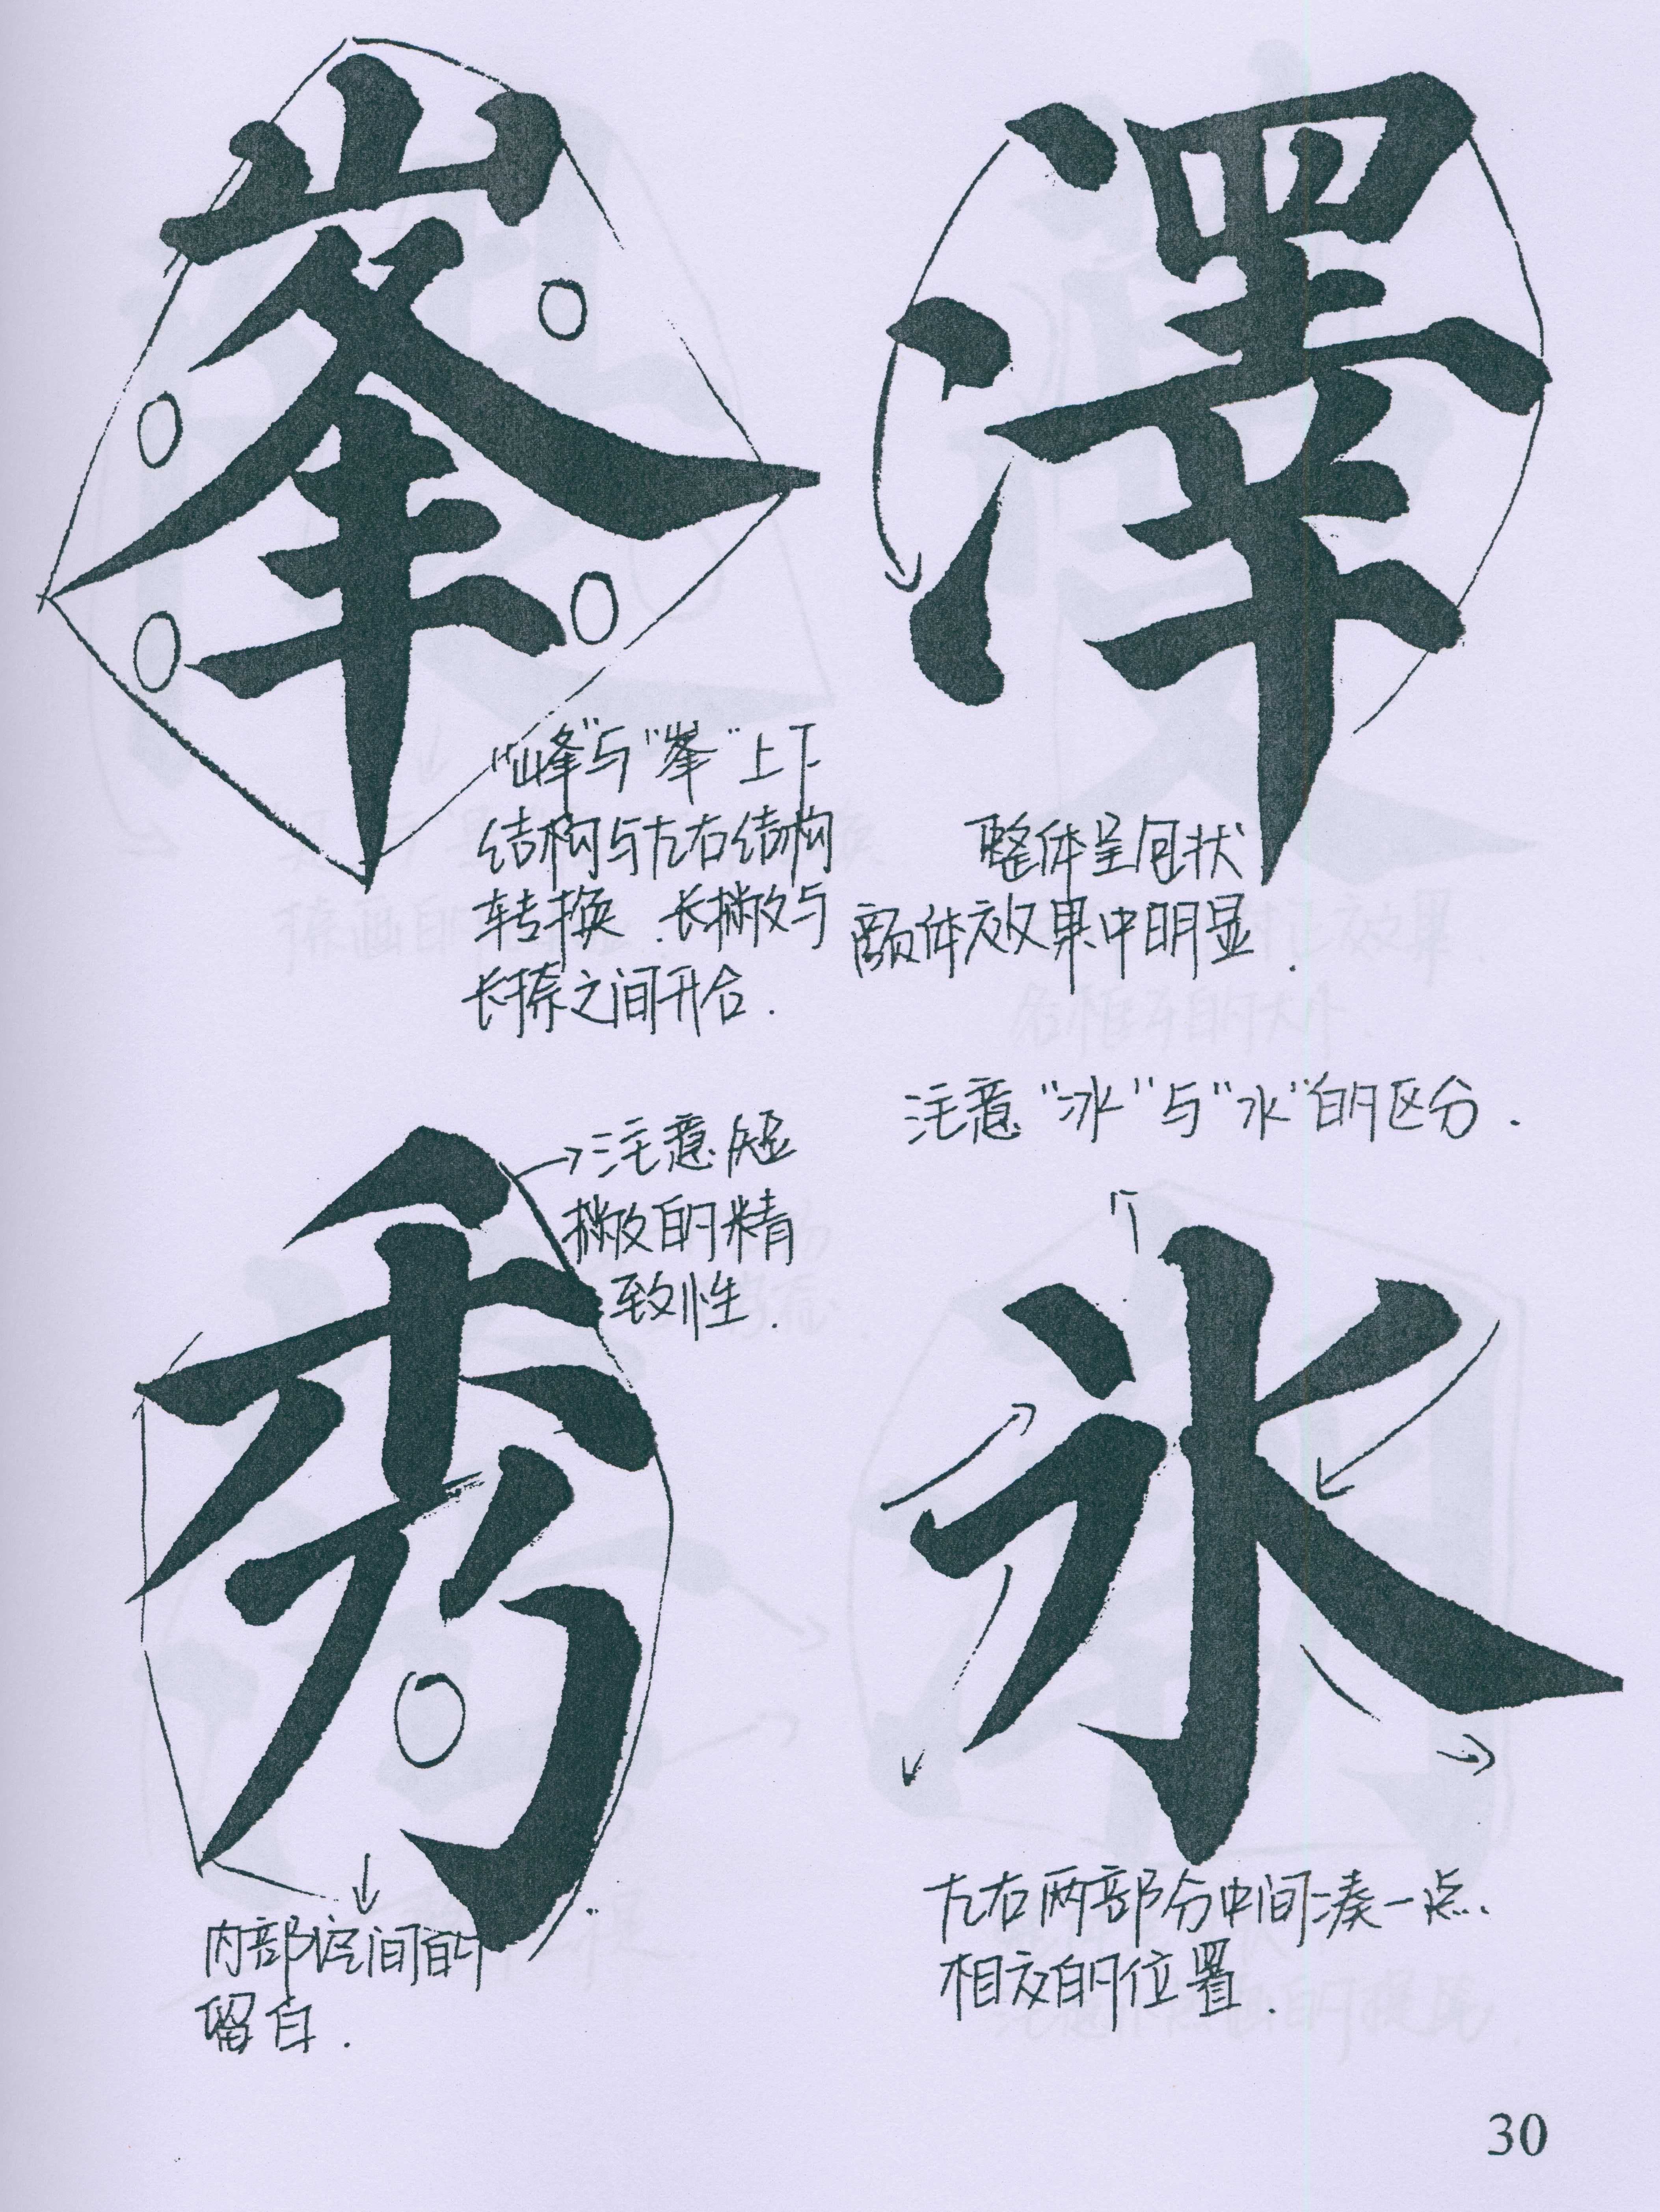 峯
澤
"峰"与"峯"上下
结构与左右结构
转换.长撇与
长捺之间开合.
整体呈包状
颜体效果中明显.
秀
→注意短
撇的精
致性.
内部空间的
留白.
注意"冰"与"水"的区分.
氷
左右两部分中间凑一点.
相交的位置.
30